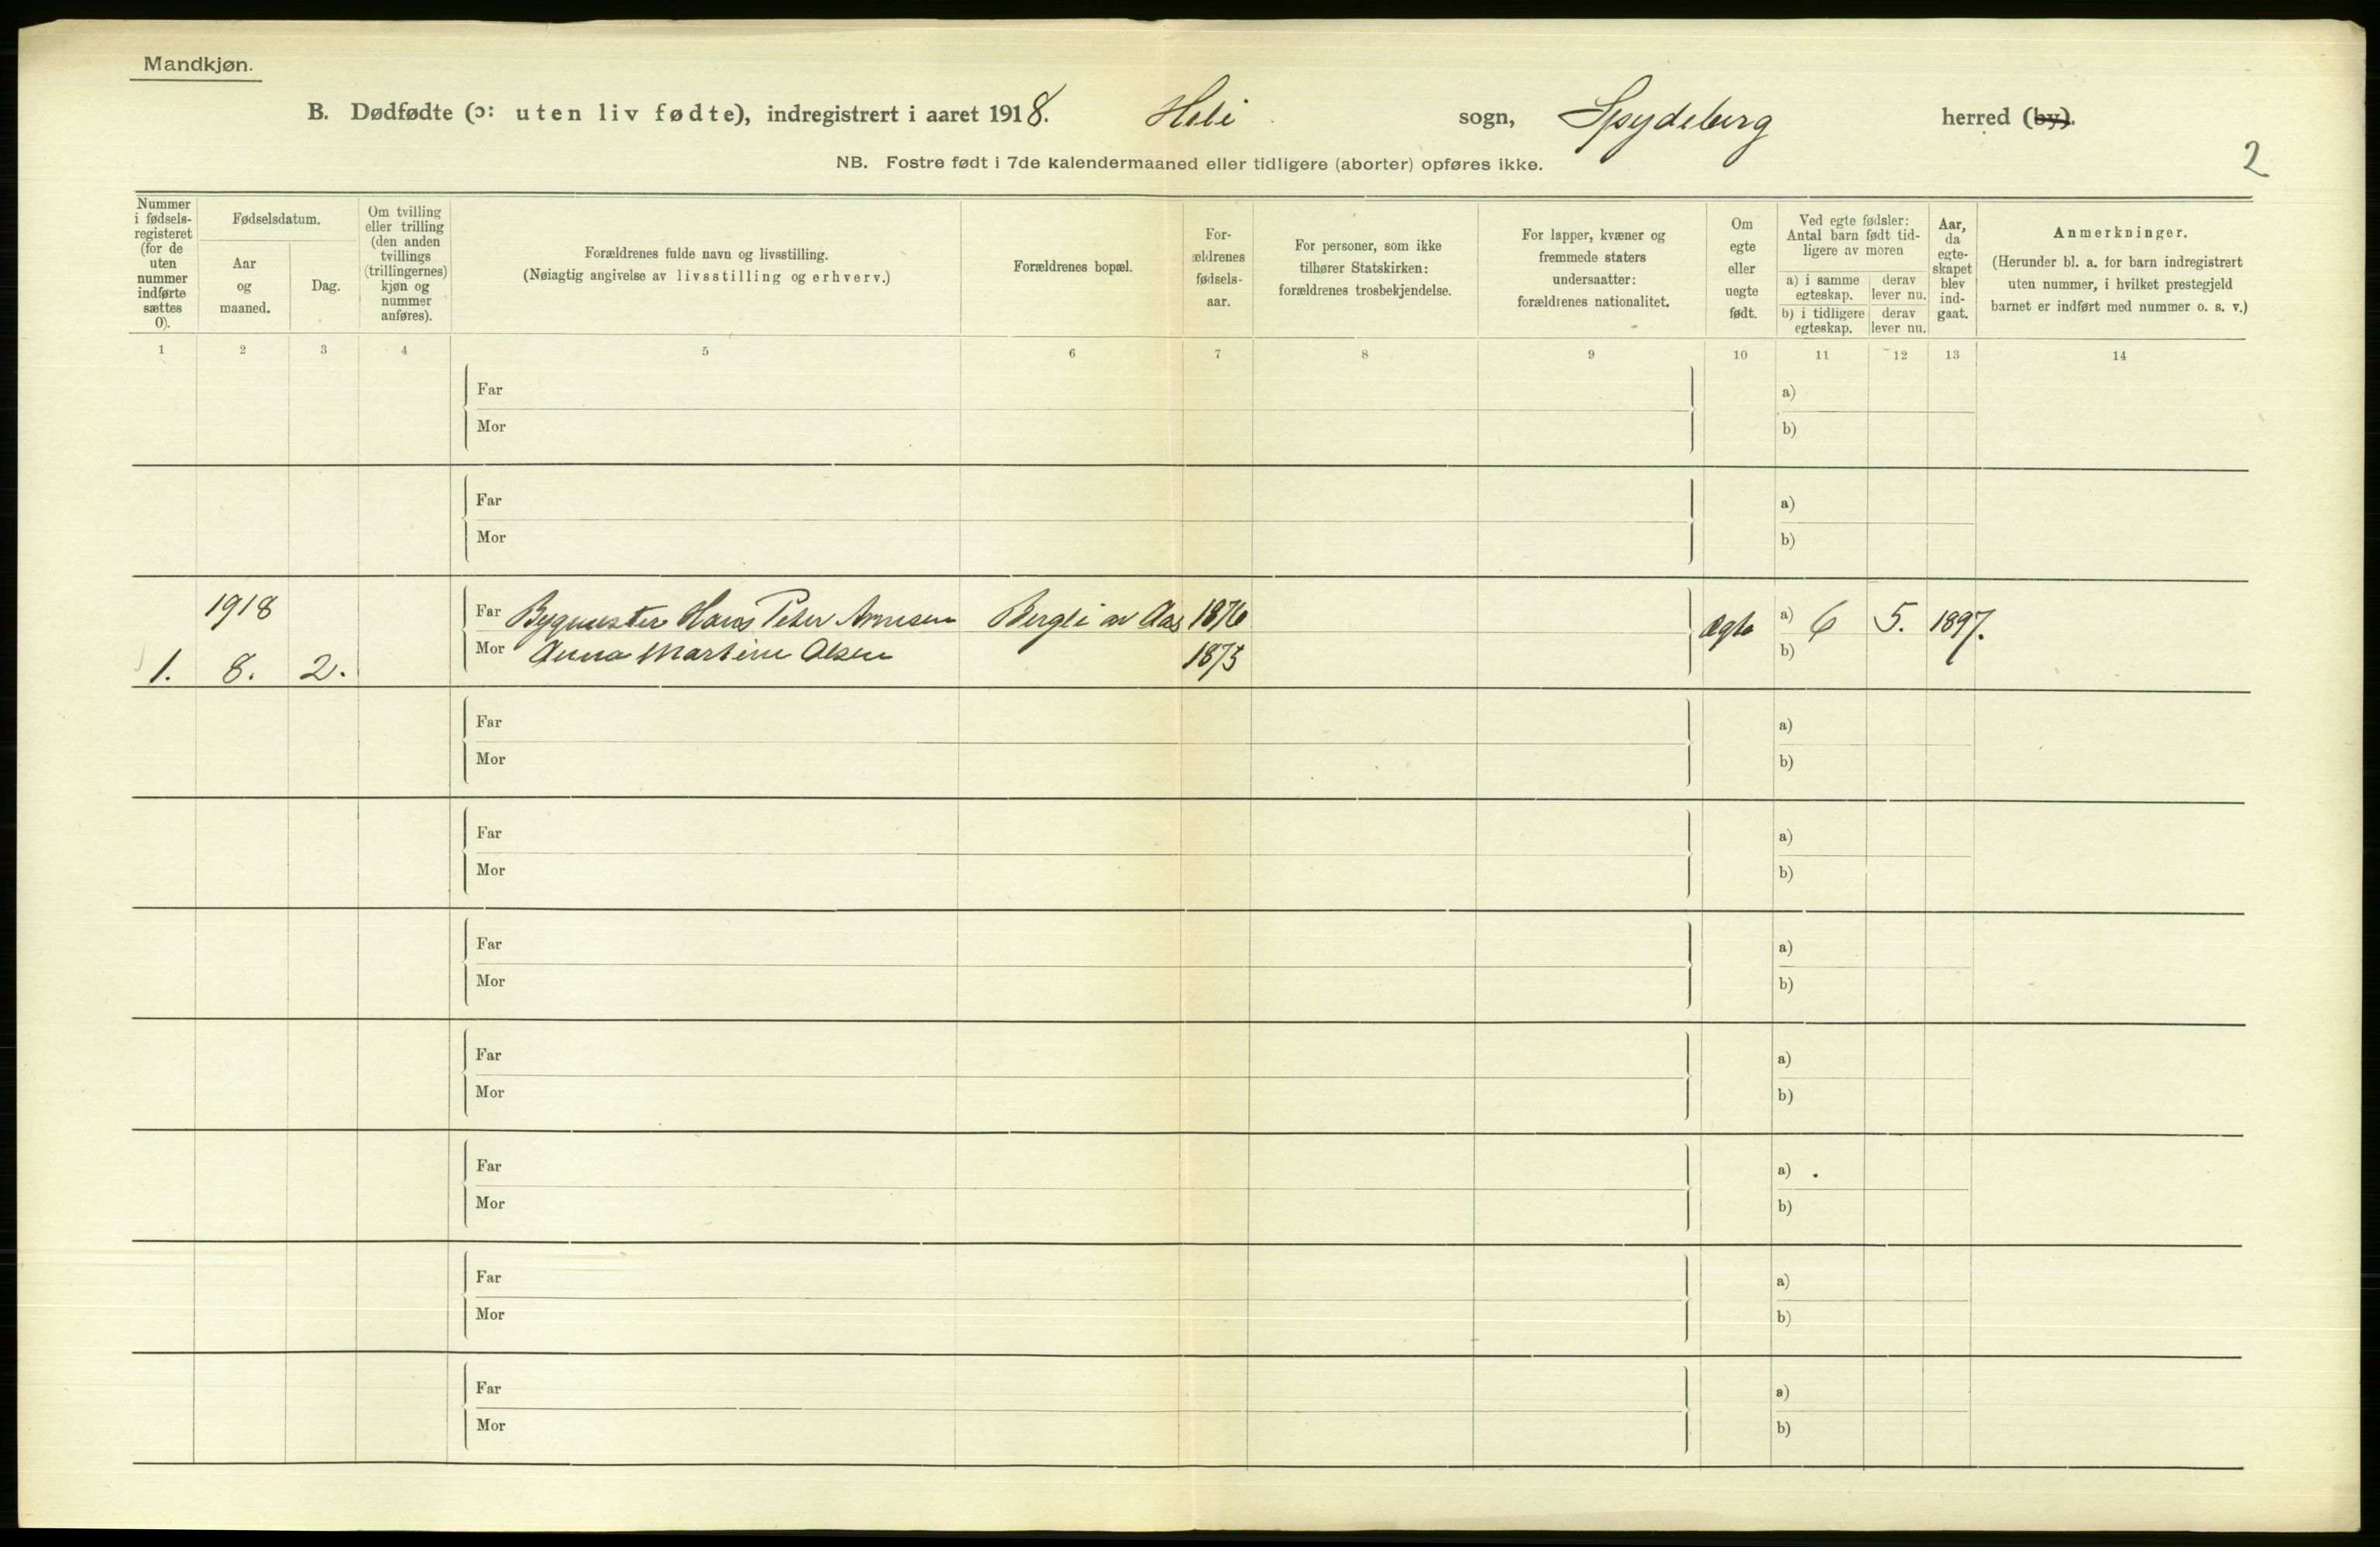 Mandkjøn.
B. Dødfødte (ɔ: uten liv fødte), indregistrert i aaret 1918. Heli sogn, Spydeberg herred (by).
NB. Fostre født i 7de kalendermaaned eller tidligere (aborter) opføres ikke.
2
Nummer
i fødsels-
registeret
(for de
uten
nummer
indførte
sættes
0).
Fødselsdatum.
Aar
og
maaned.
Dag.
Om tvilling
eller trilling
(den anden
tvillings
(trillingernes)
kjøn og
nummer
anføres).
Forældrenes fulde navn og livsstilling.
(Nøiagtig angivelse av livsstilling og erhverv.)
Forældrenes bopæl.
For-
ældrenes
fødsels-
aar.
For personer, som ikke
tilhører Statskirken:
forældrenes trosbekjendelse.
For lapper, kvæner og
fremmede staters
undersaatter:
forældrenes nationalitet.
Om
egte
eller
uegte
født.
Ved egte fødsler:
Antal barn født tid-
ligere av moren
a) i samme
egteskap.
derav
lever nu.
b) i tidligere
egteskap.
derav
lever nu.
Aar,
da
egte-
skapet
blev
ind-
gaat.
Anmerkninger.
(Herunder bl. a. for barn indregistrert
uten nummer, i hvilket prestegjeld
barnet er indført med nummer o. s. v.)
1 2 3 4 5 6 7 8 9 10 11 12 13 14
Far a)
Mor b)
Far a)
Mor b)
1918 Far Bygmester Hans Peter Arnesen Bergli av Aas 1876 Ægte a) 6 5. 1897.
1. 8. 2. Mor Anna Martine Olsen 1875 b)
Far a)
Mor b)
Far a)
Mor b)
Far a)
Mor b)
Far a)
Mor b)
Far a)
Mor b)
Far a)
Mor b)
Far a)
Mor b)